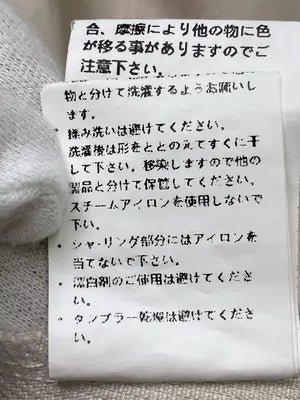 合、摩擦により他の物に色
が移る事がありますのでご
注意下さい。
物と分けて洗濯するようお願いし
ます。
・揉み洗いは避けてください。
洗濯後は形をととのえてすぐに干
して下さい。移染しますので他の
製品と分けて保管してください。
スチームアイロンを使用しないで
下い。
・シャーリング部分にはアイロンを
当てないで下さい。
・漂白剤のご使用は避けてくださ
い。
・タンブラー乾燥は避けてくださ
い。